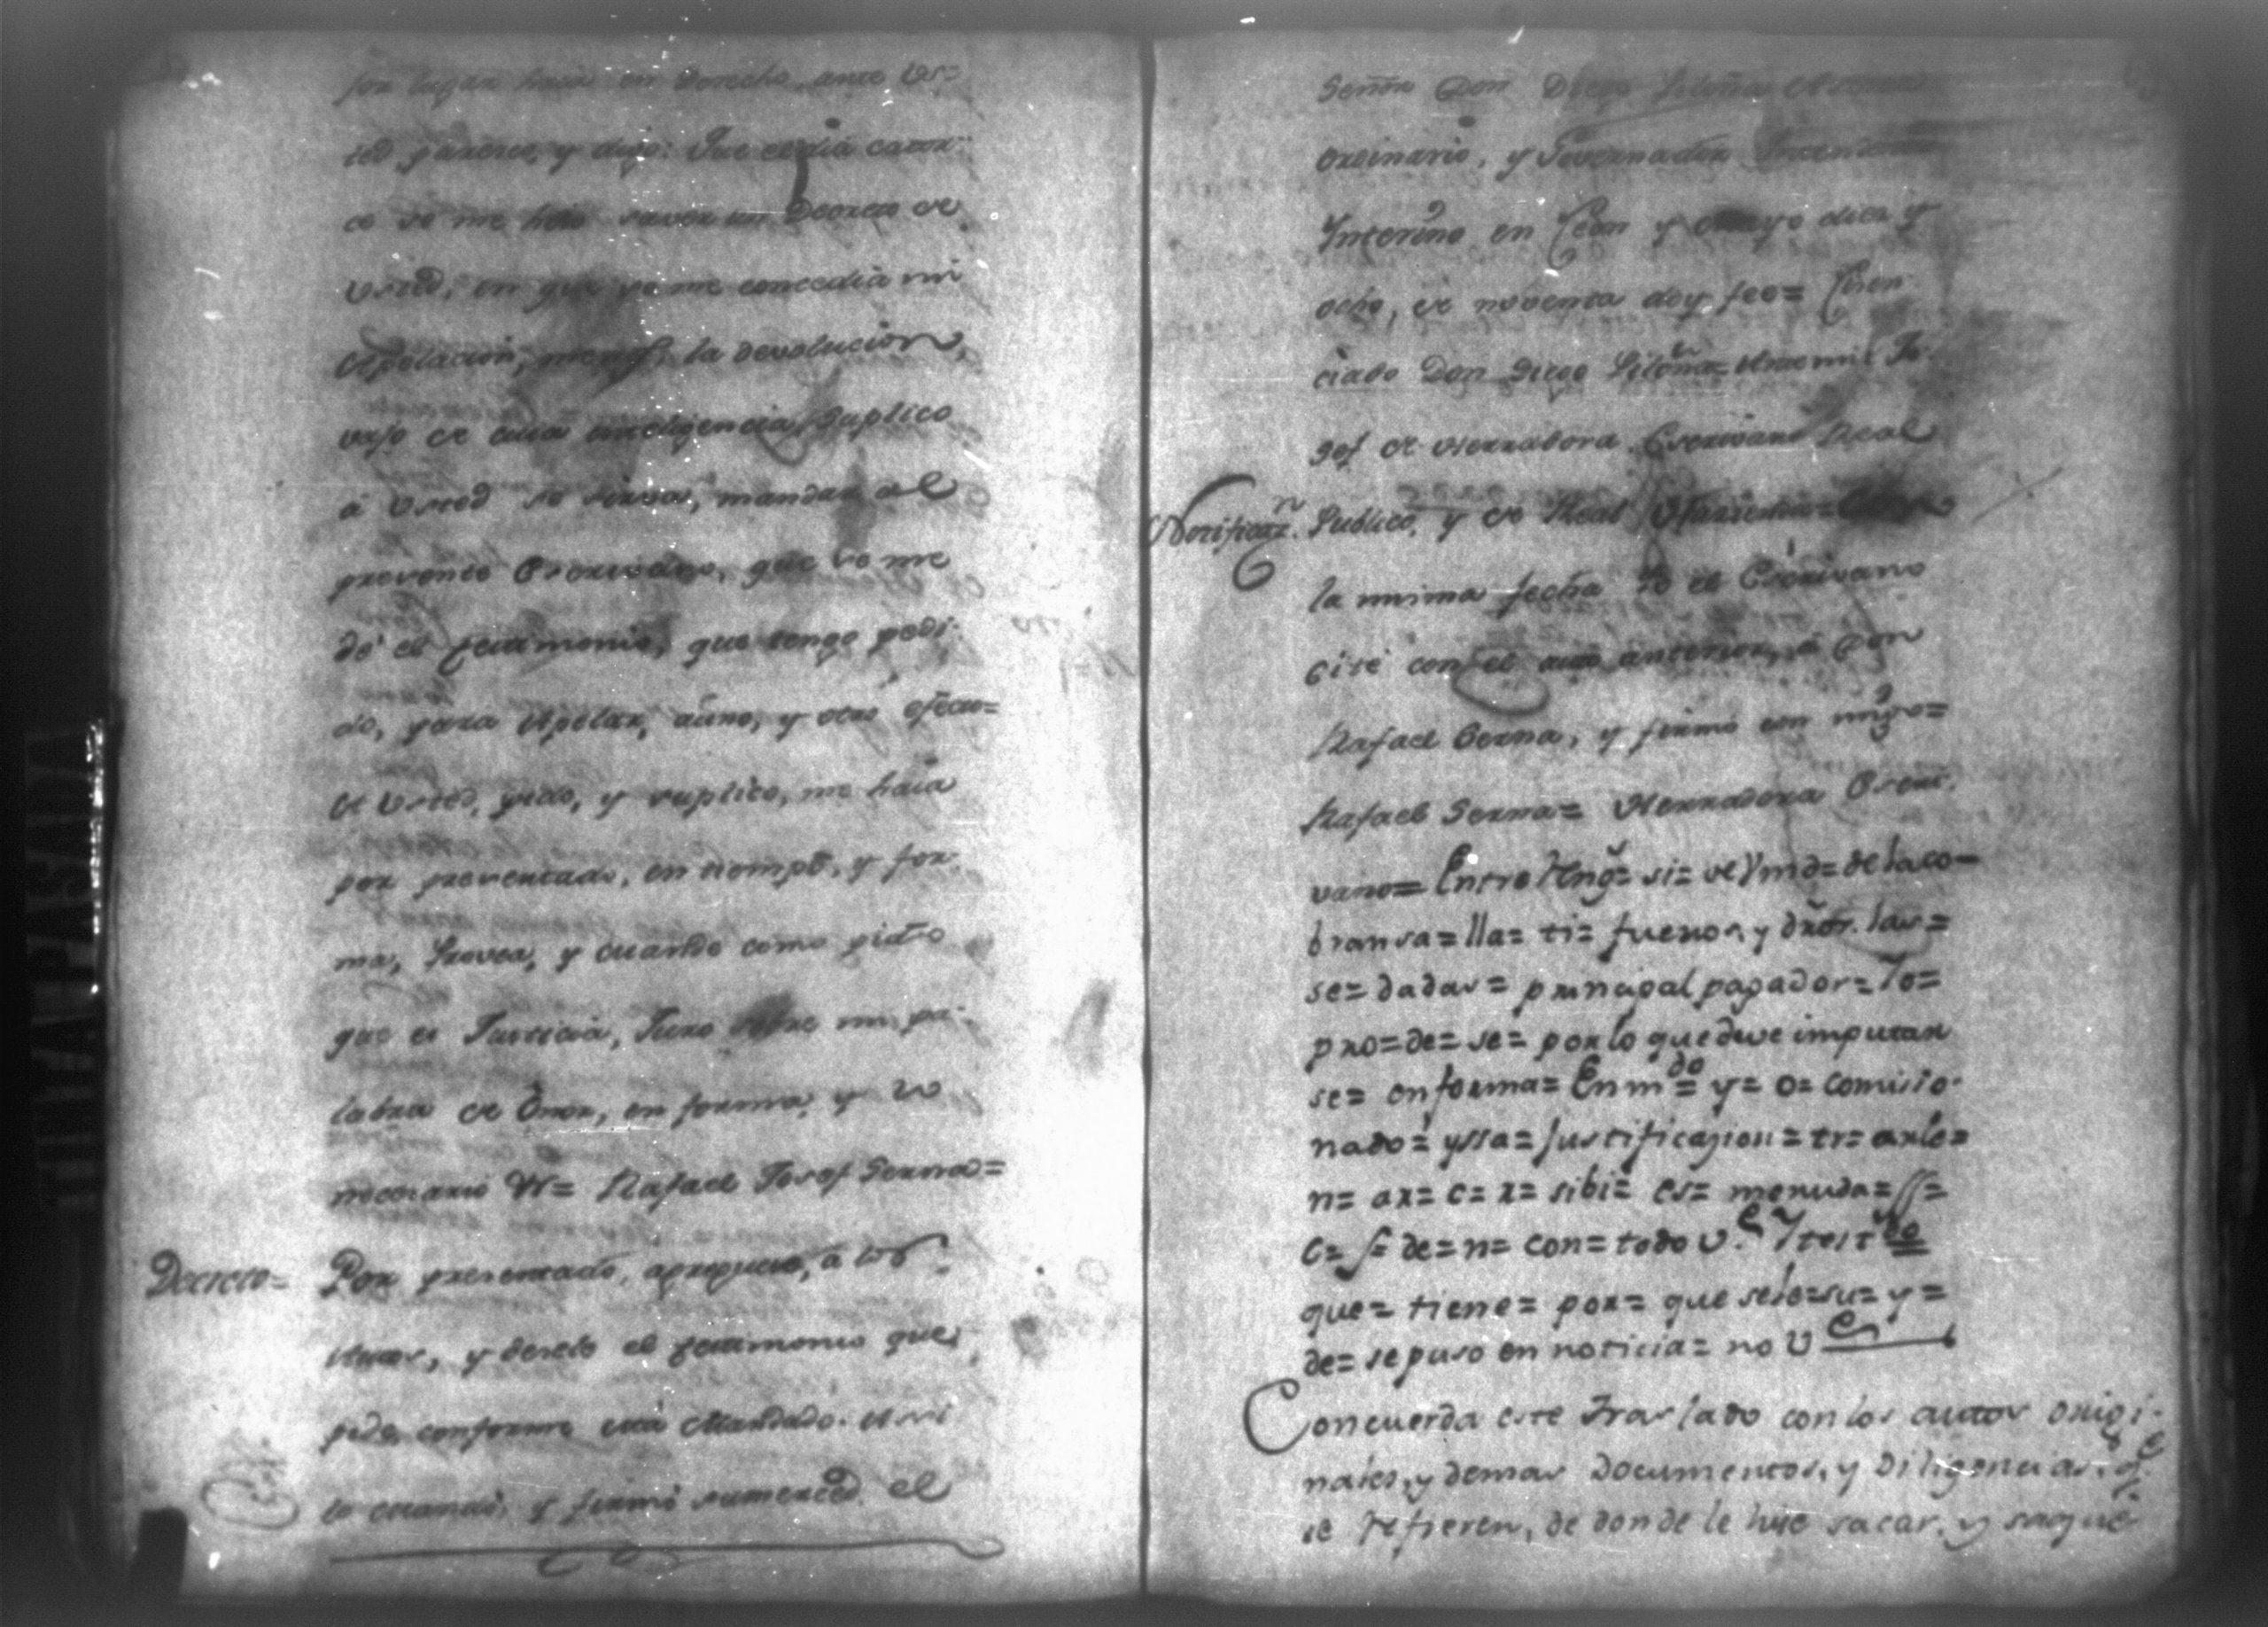 por lugar haia en Derecho, ante Us=
ted paresco, y digo: Que el dia cator-
ce se me hiso saver un Decreto de
Usted, en que se me concedia mi
Apelacion, la devolucion,
vajo de cuia inteligencia, Suplico
á Usted se sirva, mandar al
presente Escrivano, que se me
dé el testimonio, que tengo pedi-
do, para Apelar, aúno, y otro efecto=
A Usted, pido, y suplico, me haia
por presentado, en tiempo, y for-
ma, Provea, y mande como pido
que es Justicia, Juro sobre mi pa-
labra de Onor, en forma, y lo
necesario Vt= Rafael Josef Serna=
Decreto= Por presentado, agreguese, á los
Autos, y desele el testimonio que
pide conforme está Mandado. Assi
lo mandó, y firmó sumerced el
Señor Don Diego Piloña Alcalde
Ordinario, y Governador Intendente
Ynterino en Leon y Mayo diez y
ocho, de noventa doy fee= Licen-
ciado Don Diego Piloña= Ante mi: Jo-
sef de Herradora Escrivano Real
Notificazn. Publico, y de Real Hazienda=
la misma fecha Yo el Escrivano
cité con el auto anterior, á Don
Rafael Serna, y firmó con migo=
Rafael Serna= Herradora Escri-
vano= Entre Reng.s= si= ve Ymd= de la co=
bransa= lla= ti= fueros, y dros. las=
se= dadas= principal pagador= Yo=
pro= de= se= por lo que deve imputar
se= en forma= Enmdo= y= o= comisio-
nado= yssa= Justificazion= tr= arle=
n= ax= c= x= sibi= es= menuda= ss=
c= s= de= n= con= todo v.e Y testdo
que= tiene= por= que sele= su= y=
de= se puso en noticia= no v.e
Concuerda este Traslado con los autos origi-
nales, y demas Documentos, y Diligencias, q.e
se refieren, de donde le hise sacar, y saqué